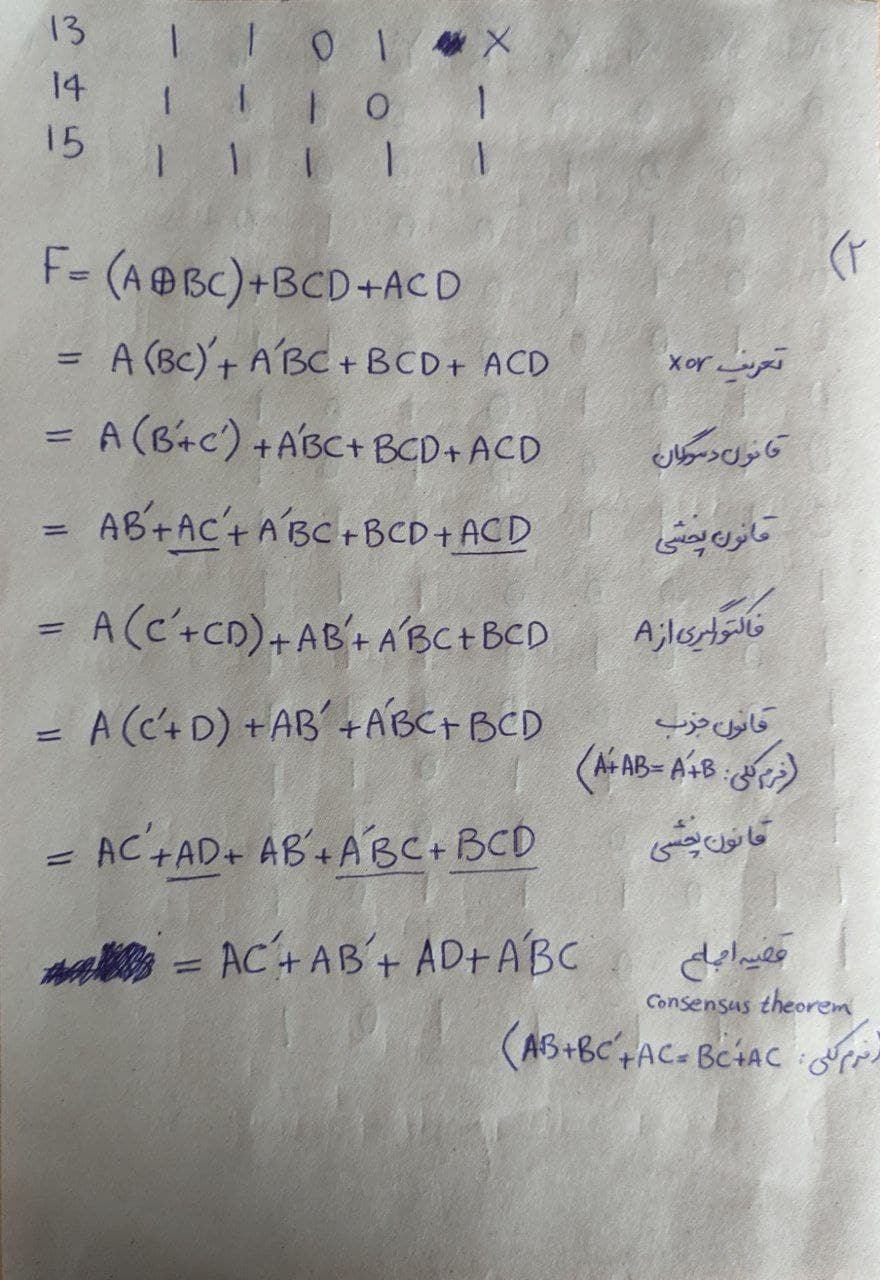 13 1 1 0 1 X
14 1 1 1 0 1
15 1 1 1 1 1
۲)
F = (A⊕BC)+BCD+ACD
= A(BC)'+ A'BC + BCD + ACD تعریف xor
= A(B'+C') + A'BC + BCD + ACD قانون دمورگان
= AB'+AC'+ A'BC + BCD + ACD قانون پخشی
= A(C'+CD) + AB'+ A'BC + BCD فاکتورگیری از A
= A(C'+D) + AB' + A'BC + BCD قانون جذب
(فرم کلی: A'+AB = A'+B)
= AC'+AD + AB'+ A'BC + BCD قانون پخشی
= AC'+ AB'+ AD + A'BC قضیه اجماع
Consensus theorem
(فرم کلی: AB+BC'+AC = BC'+AC)